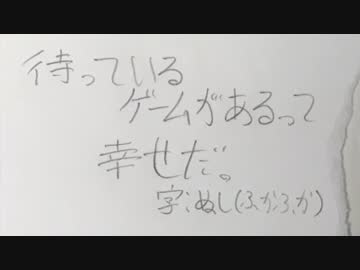 待っている
ゲームがあるって
幸せだ。
字:ぬし(ふかふか)